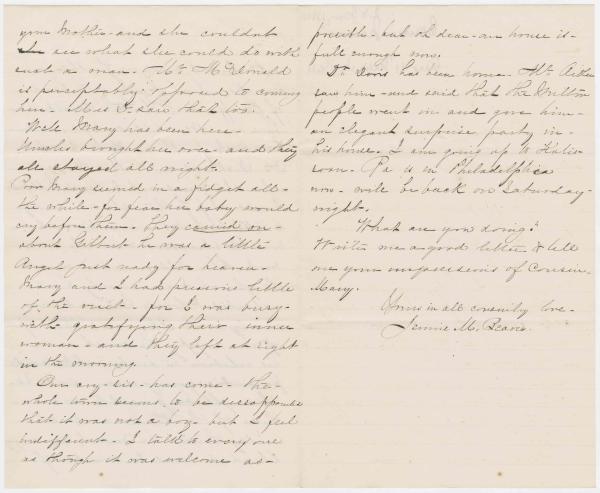 your Mother - and she couldnt
see what she could do with
such a man - Mr. McDonald
is perceptably opposed to coming
here - Miss I. saw that too.
Well Mary has been here -
brought her over - and they
all stayed all night.
Poor Mary seemed in a fidget all -
the while - for fear her baby would
cry before them. They carried on -
about Gilbert he was a little
Angel just ready for heaven -
Mary and I had precious little
of the visit - for I was busy -
with gratifying their inner
woman - and they left at eight
in the morning.
Our cry-sis - has come - the -
whole town seems to be dissappointed
that it was not a boy - but I feel
indifferent - I talk to every one
as though it was welcome as -
possible - but oh dear - our house is -
full enough now.
Dr. has been home - Mr. Aitken
saw him - and said that the
people went in and gave him -
an elegant surprise party in -
his house. I am going up to
soon - Pa is in Philadelphia
now - will be back on Saturday -
night.
What are you doing?
Write me a good letter & tell
me your impressions of Cousin -
Mary.
Yours in all cousinly love -
Jennie M.